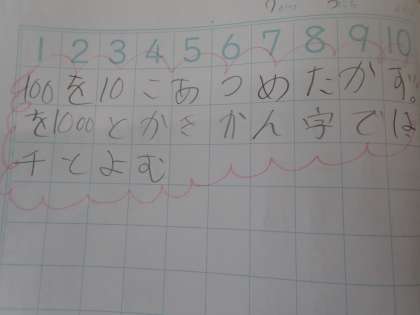 1 2 3 4 5 6 7 8 9 10
100を10こあつめたかず。
を1000とかきかん字では
千とよむ